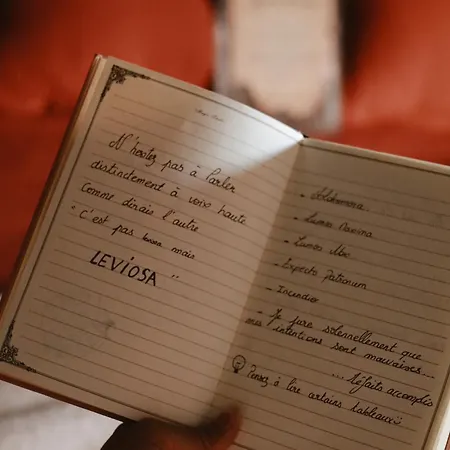 N'hésitez pas à Parler
distinctement à voix haute
Comme dirais l'autre
"C'est pas mais
LEVIOSA"
- Alohomora
- Lumos Maxima
- Lumos
- Expecto Patronum
- Incendio
- Je jure solennellement que
mes intentions sont mauvaises...
... Méfaits accomplis
Pensez à lire certains tableaux